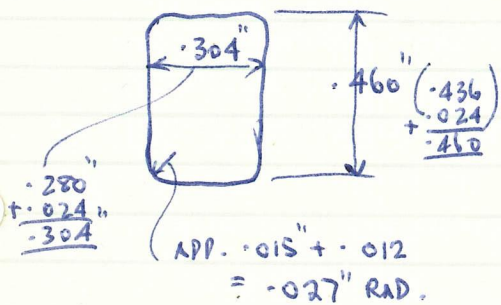 .304"
.460" (.436
+ .024
.460)
.280"
+ .024"
.304
APP. .015" + .012
= .027" RAD.